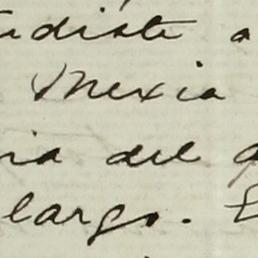 udiste a
Mexia
ia del
largo. E